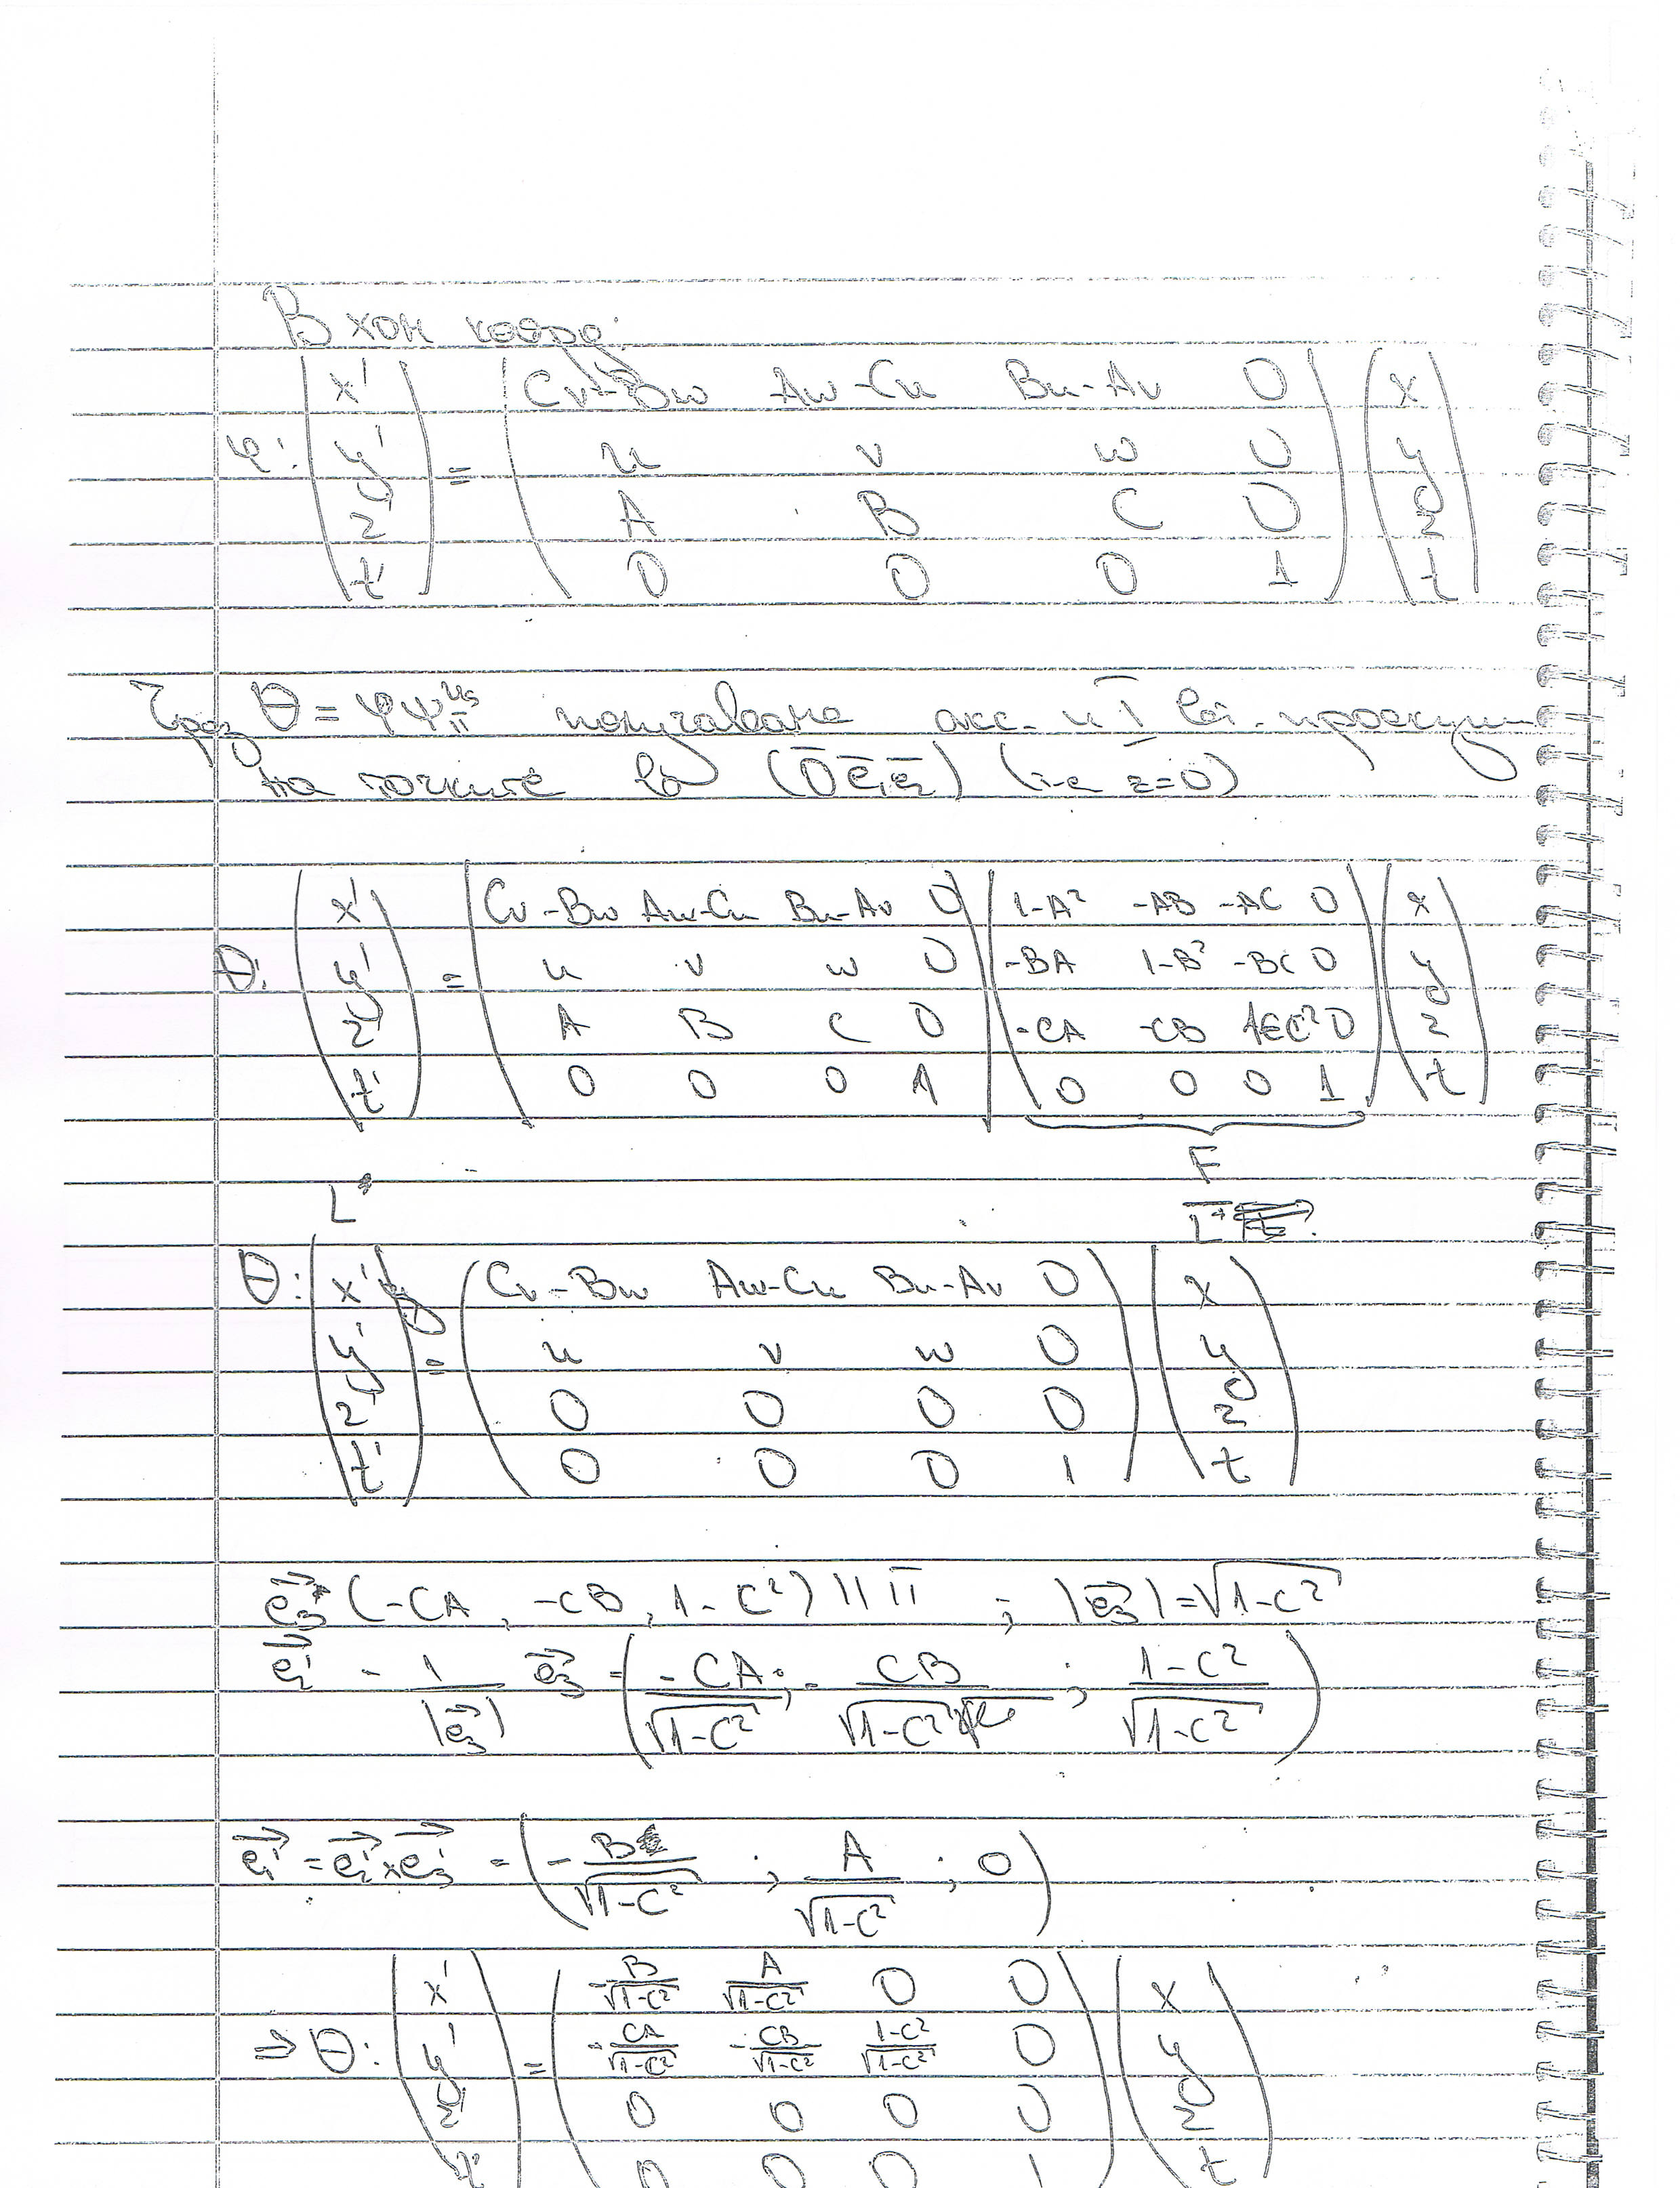 В хон коорд:
φ: (x' y' z' t') = (Cv-Bw Aw-Cu Bu-Av 0
u v w 0
A B C 0
0 0 0 1) (x y z t)
Чрез θ = φψ получаваме акс. и проекции
на точките в (O e₁ e₂) (т.е z=0)
θ: (x' y' z' t') = (Cv-Bw Aw-Cu Bu-Av 0 | 1-A² -AB -AC 0
u v w 0 | -BA 1-B² -BC 0
A B C 0 | -CA -CB 1-C² 0
0 0 0 1 | 0 0 0 1) (x y z t)
F
L
L
θ: (x' y' z' t') = (Cv-Bw Aw-Cu Bu-Av 0
u v w 0
0 0 0 0
0 0 0 1) (x y z t)
e₃* (-CA, -CB, 1-C²) || π ; |e₃| = √1-C²
e₂' = 1/|e₃| e₃ = (-CA/√1-C² ; -CB/√1-C² ; 1-C²/√1-C²)
e₁' = e₂' × e₃' = (-B/√1-C² ; A/√1-C² ; 0)
⇒ θ: (x' y' z' t') = (-B/√1-C² A/√1-C² 0 0
-CA/√1-C² -CB/√1-C² 1-C²/√1-C² 0
0 0 0 0
0 0 0 1) (x y z t)